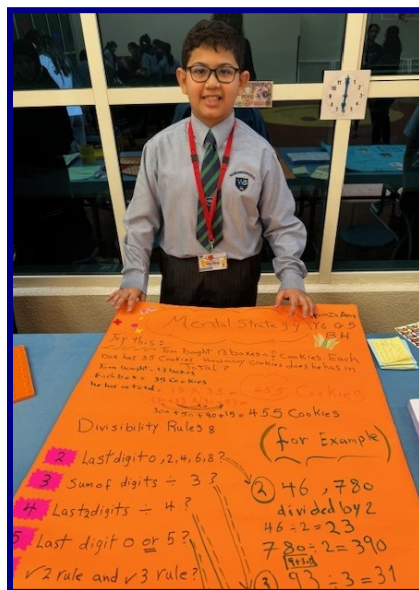 Mental Strategy Y6 G5
BH
Try this:
Tom bought 13 boxes of Cookies. Each
box has 35 Cookies. How many cookies does he has in
Total?
Tom bought = 13 boxes
Each box = 35 Cookies
He has in total = 13 x 35 = 455 Cookies
300+50+90+15 = 455 Cookies
Divisibility Rules 8
(for Example)
2 Last digit 0,2,4,6,8?
3 Sum of digits ÷ 3?
4 Last 2 digits ÷ 4?
5 Last digit 0 or 5?
✓2 rule and ✓3 rule?
2 46, 780
divided by 2
46 ÷ 2 = 23
780 ÷ 2 = 390
3 93 ÷ 3 = 31